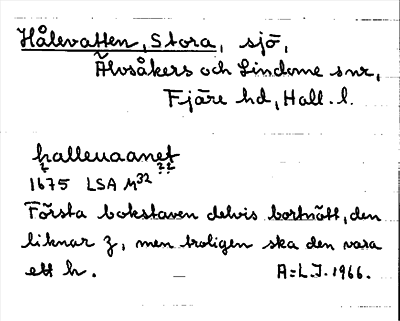 Hålevatten, Stora, sjö,
Älvsåkers och Lindome snr,
Fjäre hd, Hall. l.
halleuaanet
? ? ?
1675 LSA M32
Första bokstaven delvis bortnött, den
liknar z, men troligen ska den vara
ett h.
A:L.J. 1966.